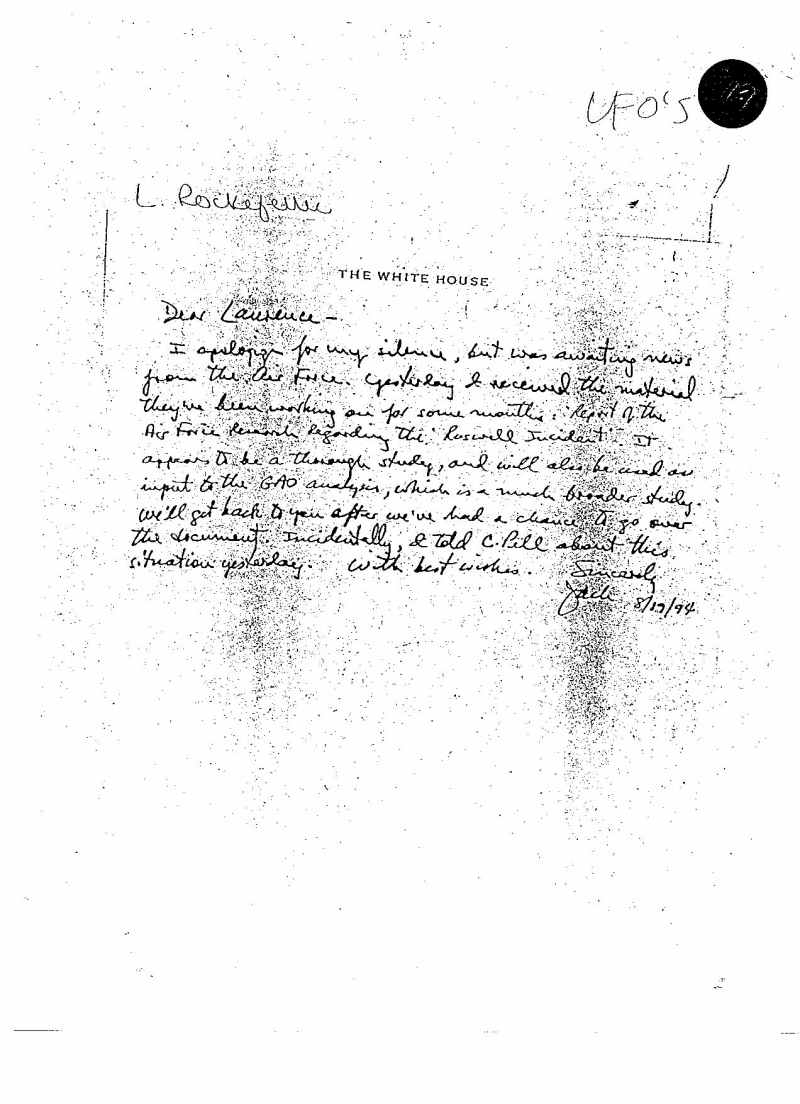 UFO'S
L. Rockefeller
THE WHITE HOUSE
Dear Laurence -
I apologize for my silence, but was awaiting news
from the Air Force. Yesterday I received the material
they've been working on for some months: Report of the
Air Force Research Regarding the "Roswell Incident". It
appears to be a thorough study, and will also be used as
input to the GAO analysis, which is a much broader study.
We'll get back to you after we've had a chance to go over
the document. Incidentally, I told C. Pell about this
situation yesterday. With best wishes. Sincerely
Jack 8/19/94